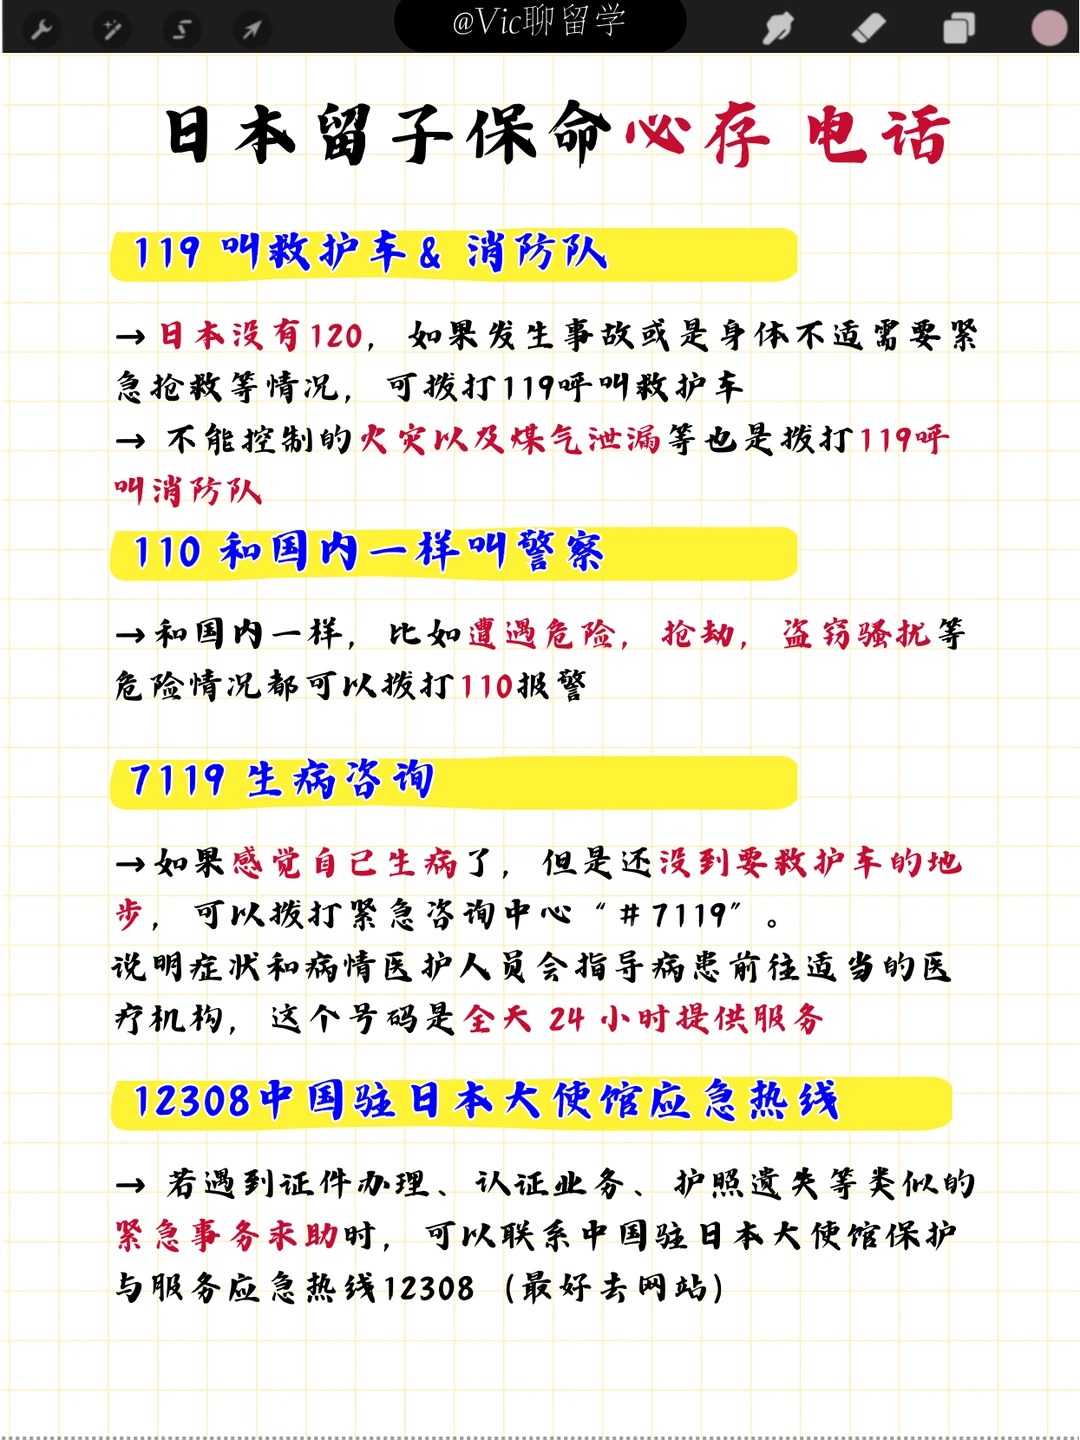 @Vic聊留学
日本留子保命必存 电话
119 叫救护车& 消防队
→日本没有120，如果发生事故或是身体不适需要紧
急抢救等情况，可拨打119呼叫救护车
→ 不能控制的火灾以及煤气泄漏等也是拨打119呼
叫消防队
110 和国内一样叫警察
→和国内一样，比如遭遇危险，抢劫，盗窃骚扰等
危险情况都可以拨打110报警
7119 生病咨询
→如果感觉自己生病了，但是还没到要救护车的地
步，可以拨打紧急咨询中心“＃7119”。
说明症状和病情医护人员会指导病患前往适当的医
疗机构，这个号码是全天 24 小时提供服务
12308中国驻日本大使馆应急热线
→ 若遇到证件办理、认证业务、护照遗失等类似的
紧急事务求助时，可以联系中国驻日本大使馆保护
与服务应急热线12308（最好去网站）